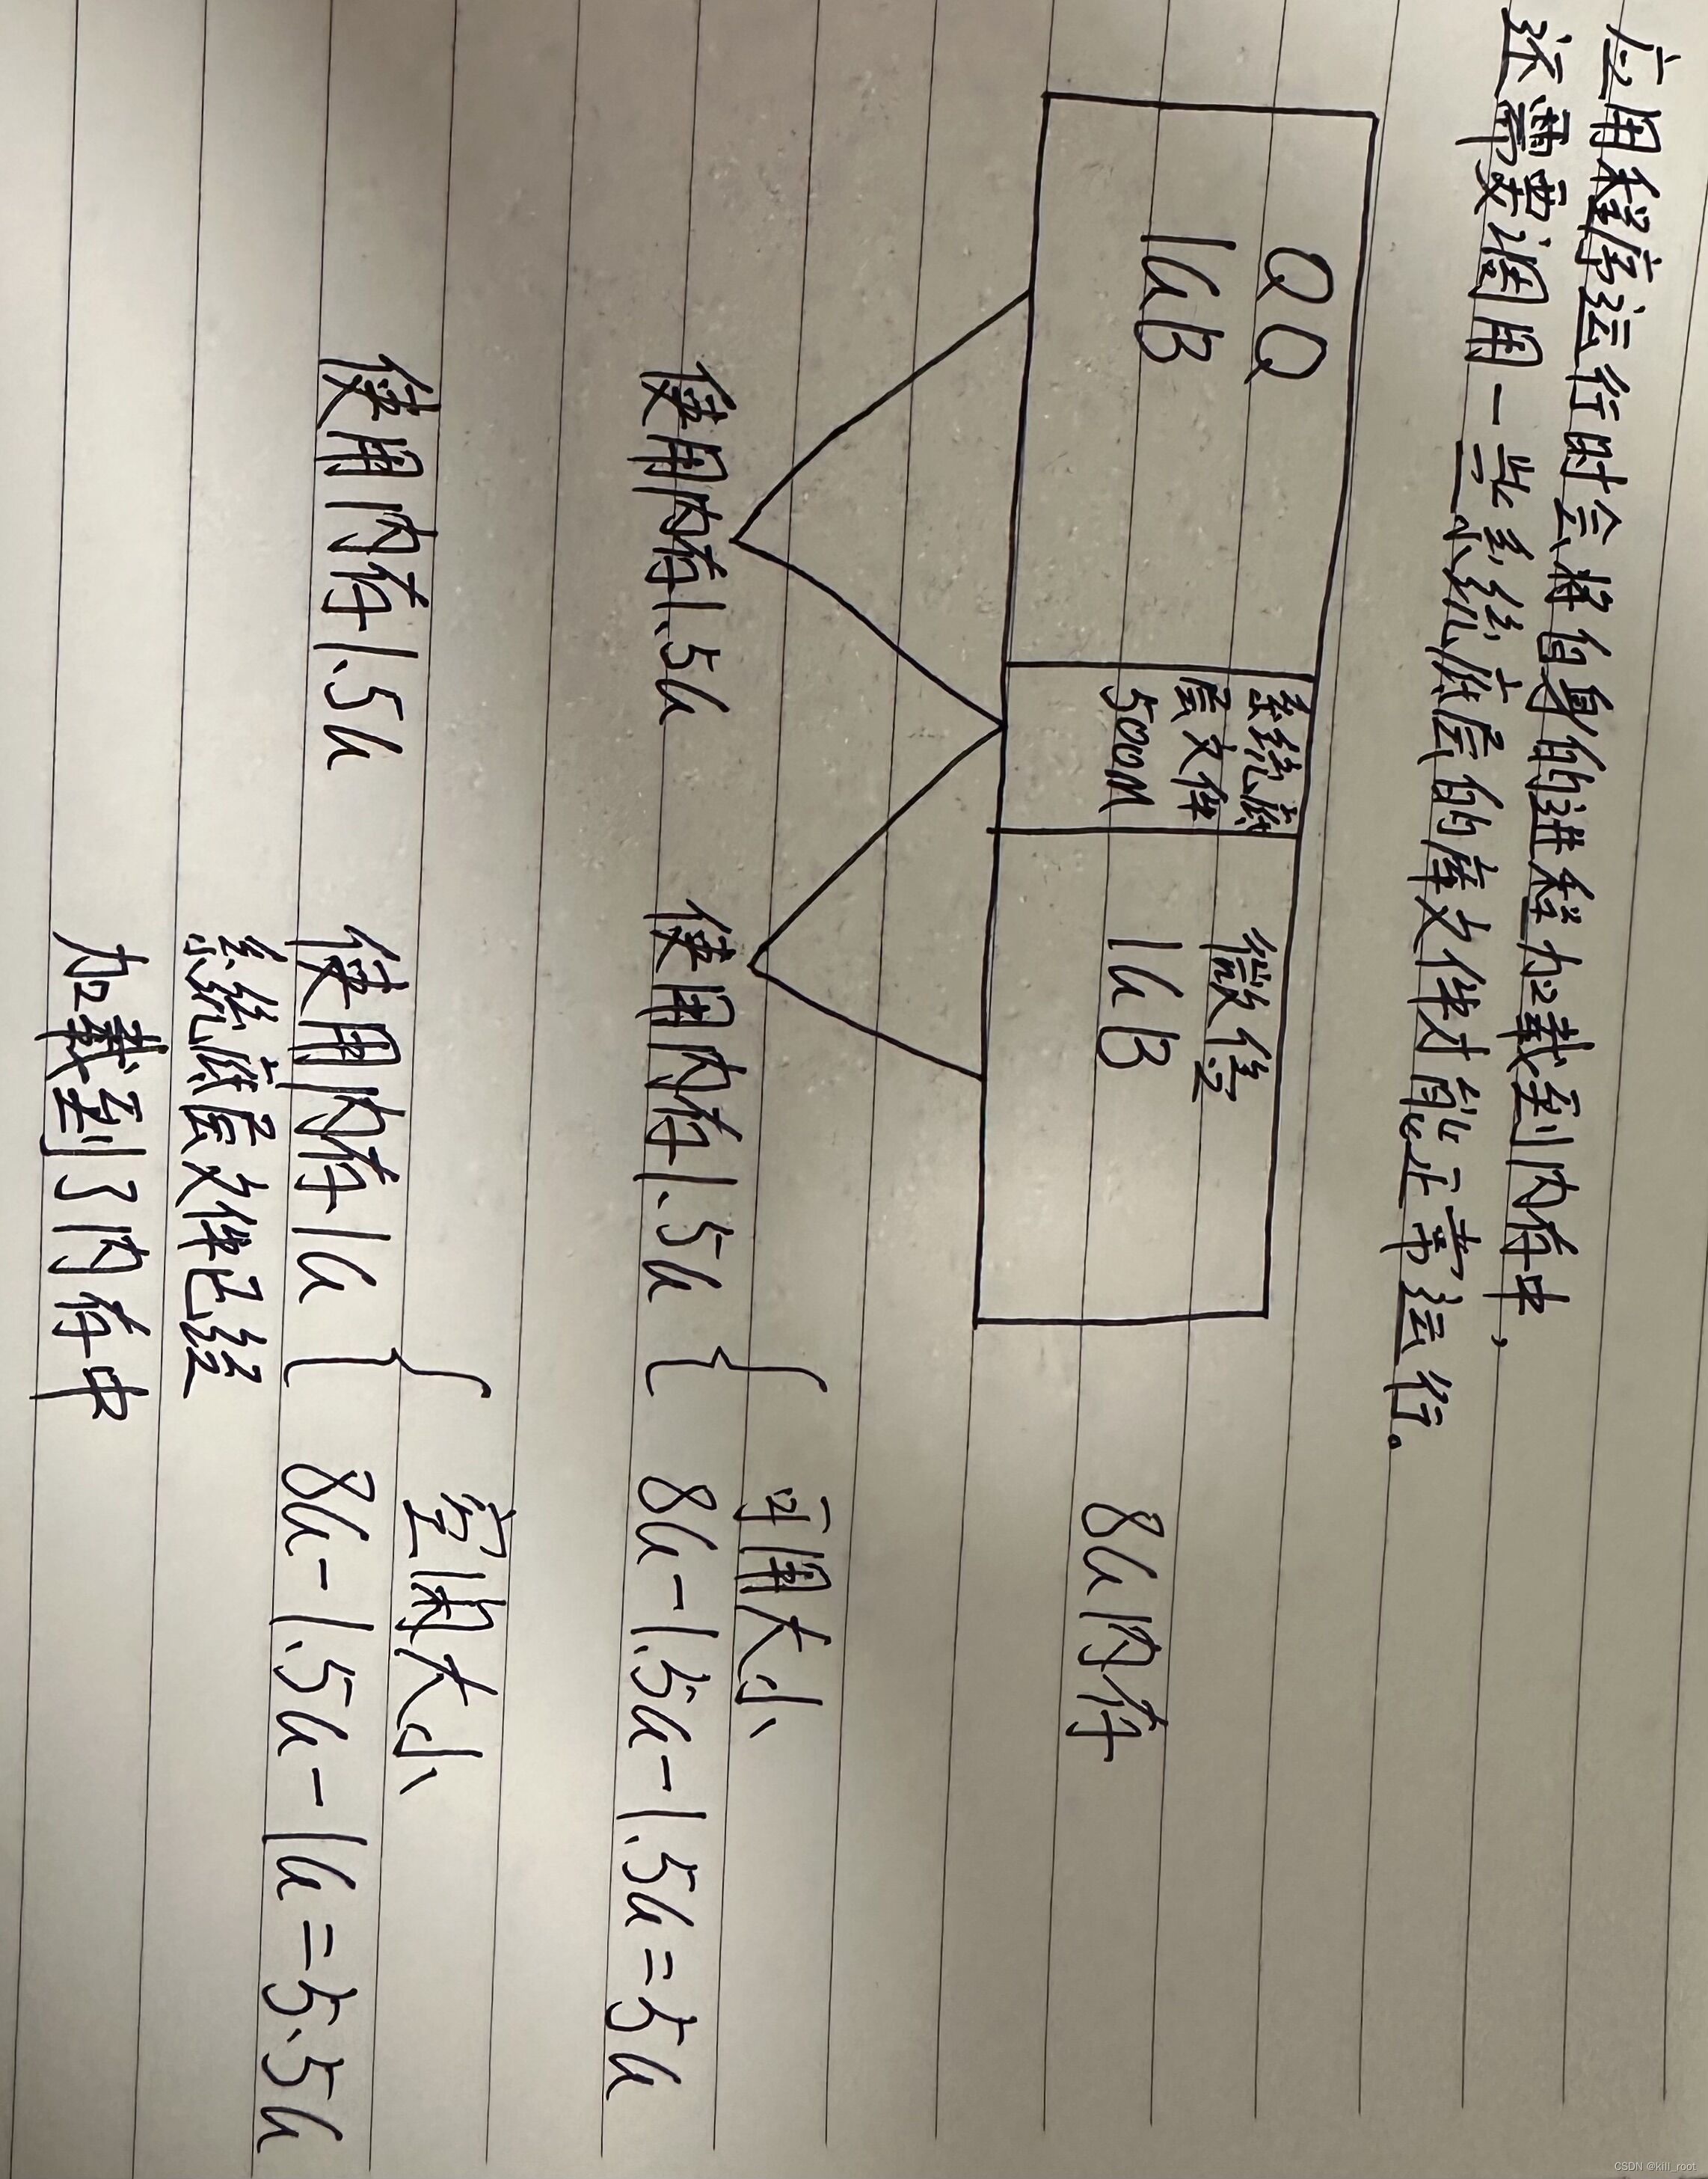 应用程序运行时会将自身的进程加载到内存中,
还需要调用一些系统底层的库文件才能正常运行。
QQ
1GB
系统底
层文件
500M
微信
1GB
8G内存
使用内存1.5G
使用内存1.5G
可用大小
8G-1.5G-1.5G=5G
使用内存1.5G
使用内存1G
系统底层文件已经
加载到了内存中
空闲大小
8G-1.5G-1G=5.5G
CSDN @kill_root